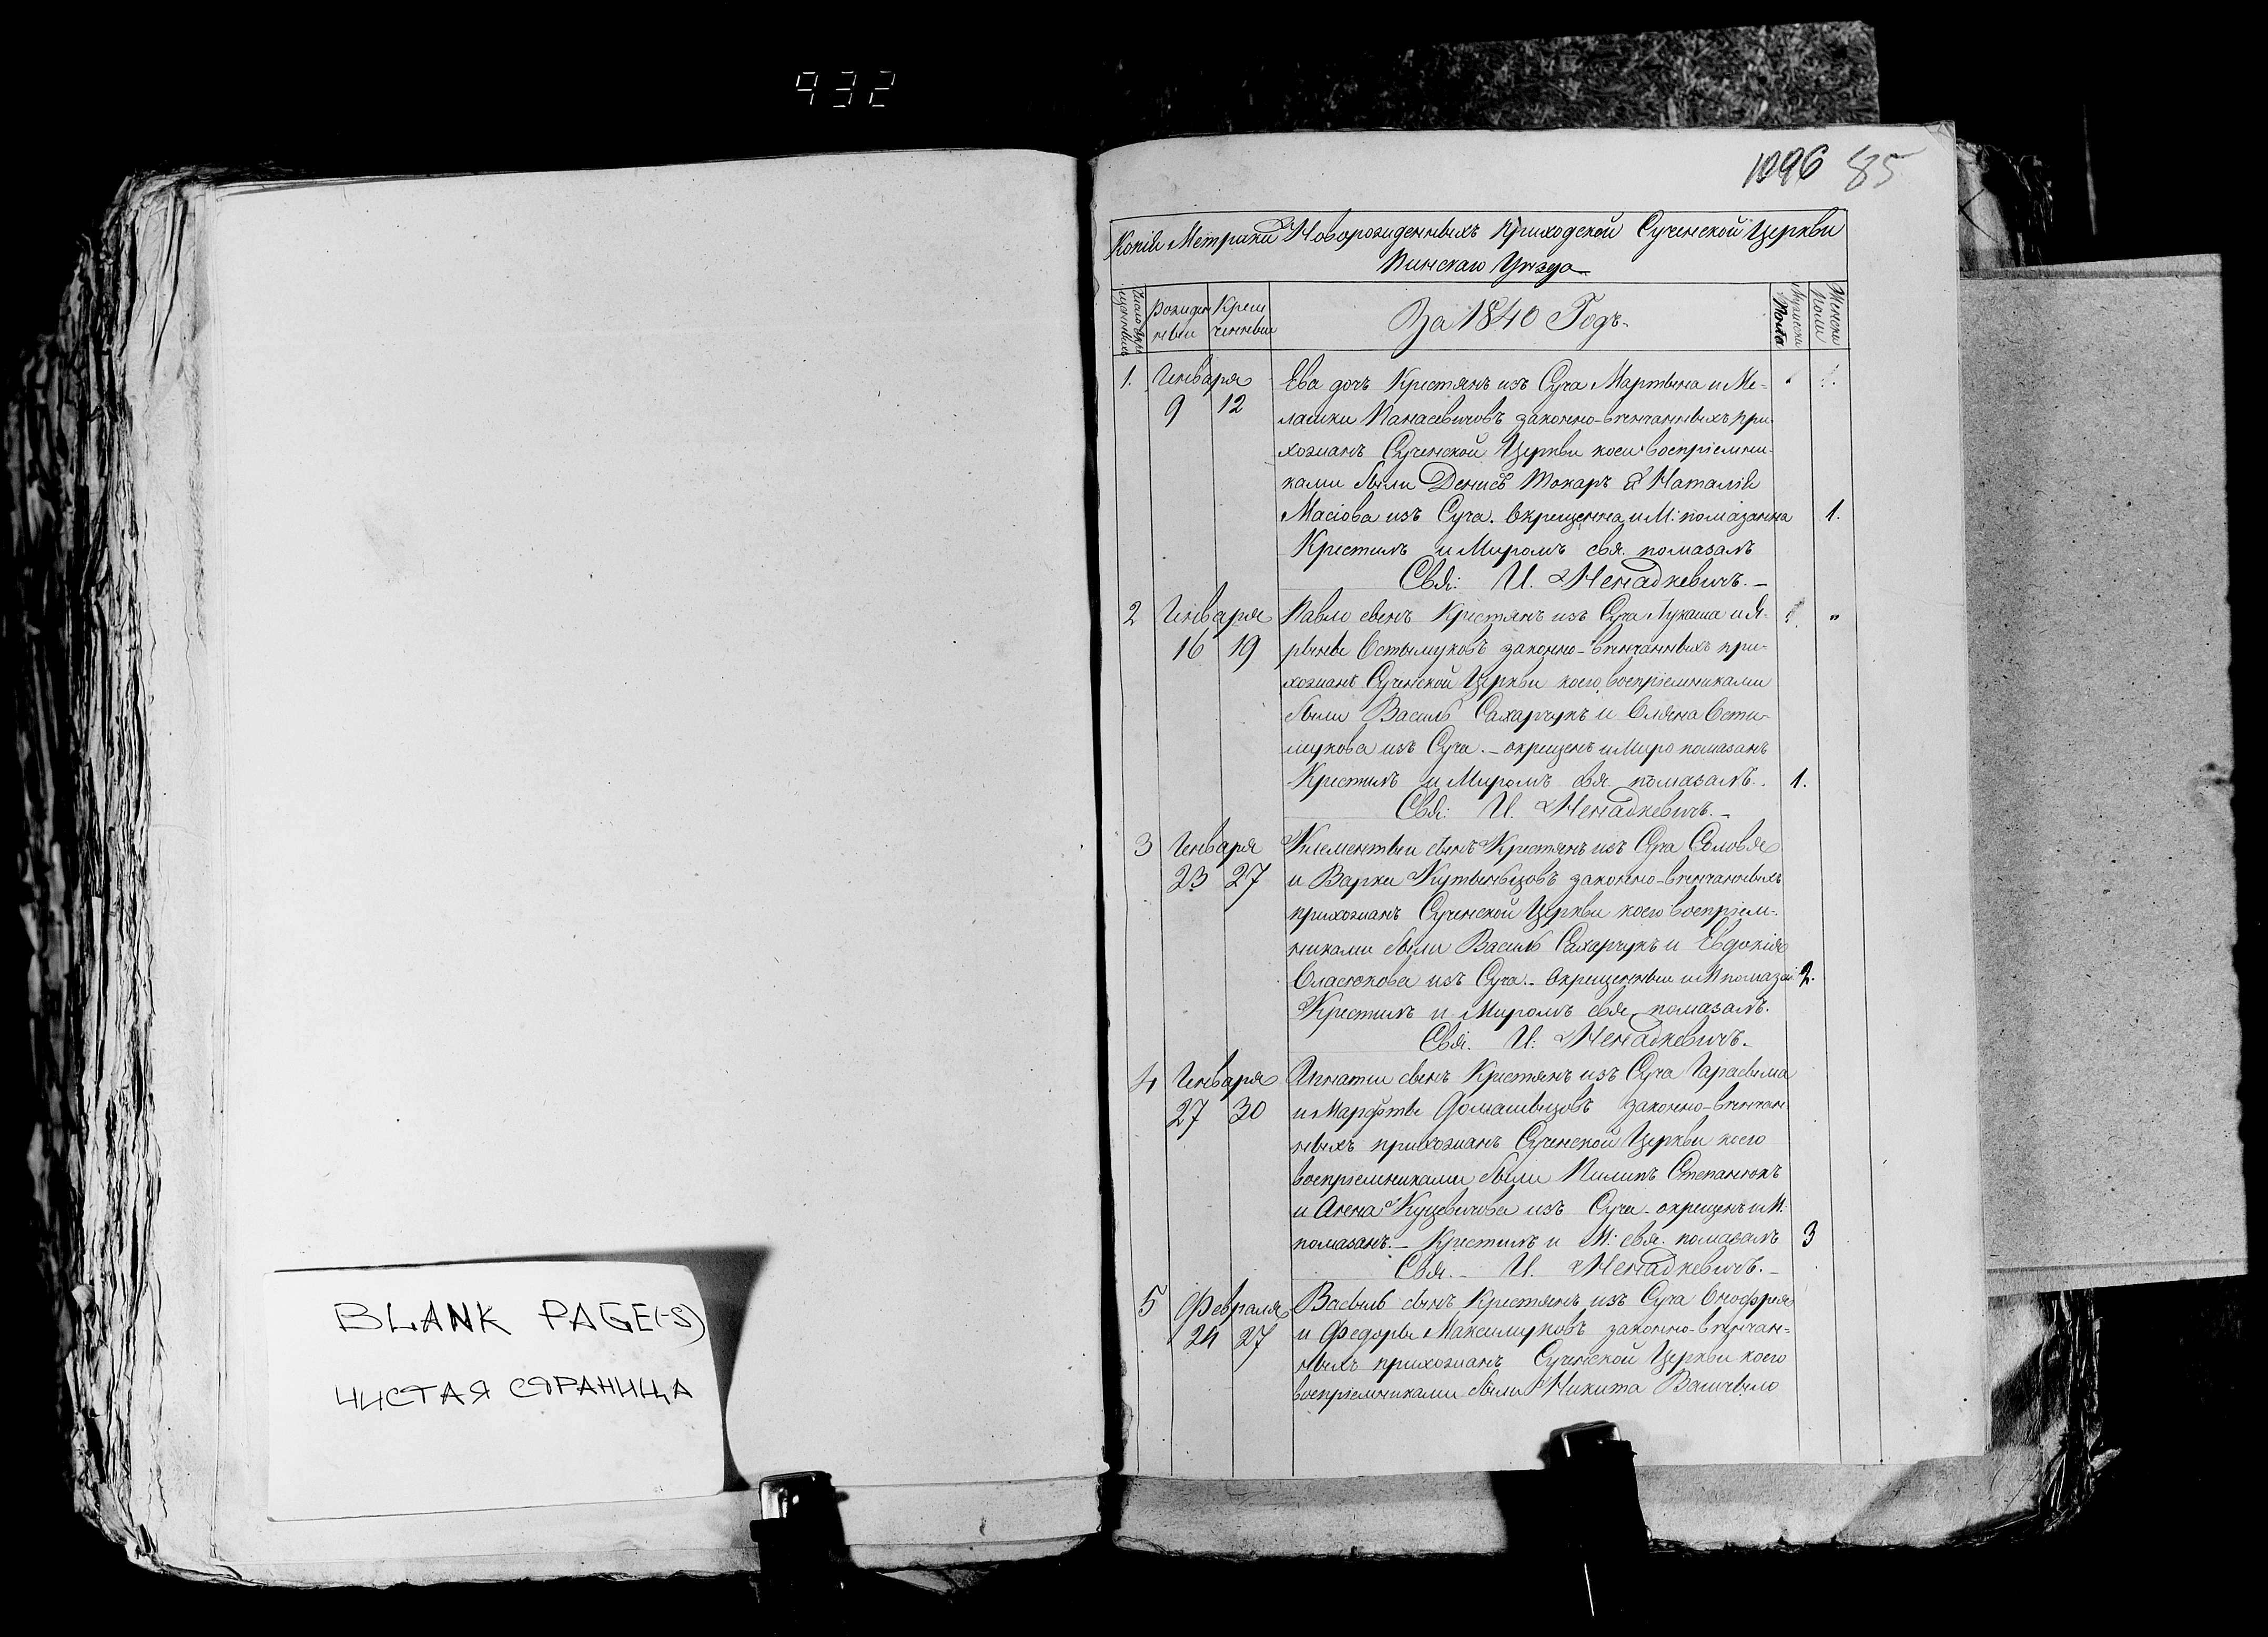 932
1096 85
Копія Метрики Новорожденныхъ Приходской Сученской Церкви
Пинскаго Уѣзда
Рожден
ныи
Крещ
ченныи
За 1840 Годъ.
Мужеска
Пола
Женска
Пола
1. Генваря
9 12
Ева дочь Крестянъ изъ Суча Мартына и Ме-
лашки Панасевичовъ законно-вѣнчанныхъ при-
хожанъ Сученской Церкви коеи воспріемни-
ками были Денисъ Токаръ и Наталія
Масіова изъ Суча. Окрещенна и М: помазанна 1.
Крестилъ и Миромъ свя. помазалъ
Свя: И. Ненадкевичъ.-
2 Генваря
16 19
Павло сынъ Крестянъ изъ Суча Лукаша и Я-
рыны Остымуковъ законно-вѣнчанныхъ при-
хожанъ Сученской Церкви коего воспріемниками
были Василь Сахарчукъ и Оляна Ости-
мукова изъ Суча.- окрещенъ и Миро помазанъ
Крестилъ и Миромъ свя. помазалъ. 1.
Свя: И. Ненадкевичъ.-
3 Генваря
23 27
Климентыи сынъ Крестянъ изъ Суча Соловя
и Варки Кутынцовъ законно-вѣнчанныхъ
прихожанъ Сученской Церкви коего воспріем-
никами были Василь Сахарчукъ и Евдокія
Оласюкова изъ Суча.- Окрещенныи и М помазан 2.
Крестилъ и Миромъ свя. помазалъ.
Свя. И: Ненадкевичъ.
4 Генваря
27 30
Игнатіи сынъ Крестянъ изъ Суча Гарасыма
и Марфты Домашыцовъ законно-вѣнчан-
ныхъ прихожанъ Сученской Церкви коего
воспріемниками были Пилипъ Степанюкъ
и Агена Куцевичова изъ Суча- окрещенъ и М:
помазанъ.- Крестилъ и М: свя. помазалъ 3
Свя.- И. Ненадкевичъ.-
5 Февраля
24 27
Васыль сынъ Крестянъ изъ Суча Онофрея
и Федоры Максимуковъ законно-вѣнчан=
ныхъ прихожанъ Сученской Церкви коего
воспріемниками были Никита
BLANK PAGE(-S)
ЧИСТАЯ СТРАНИЦА